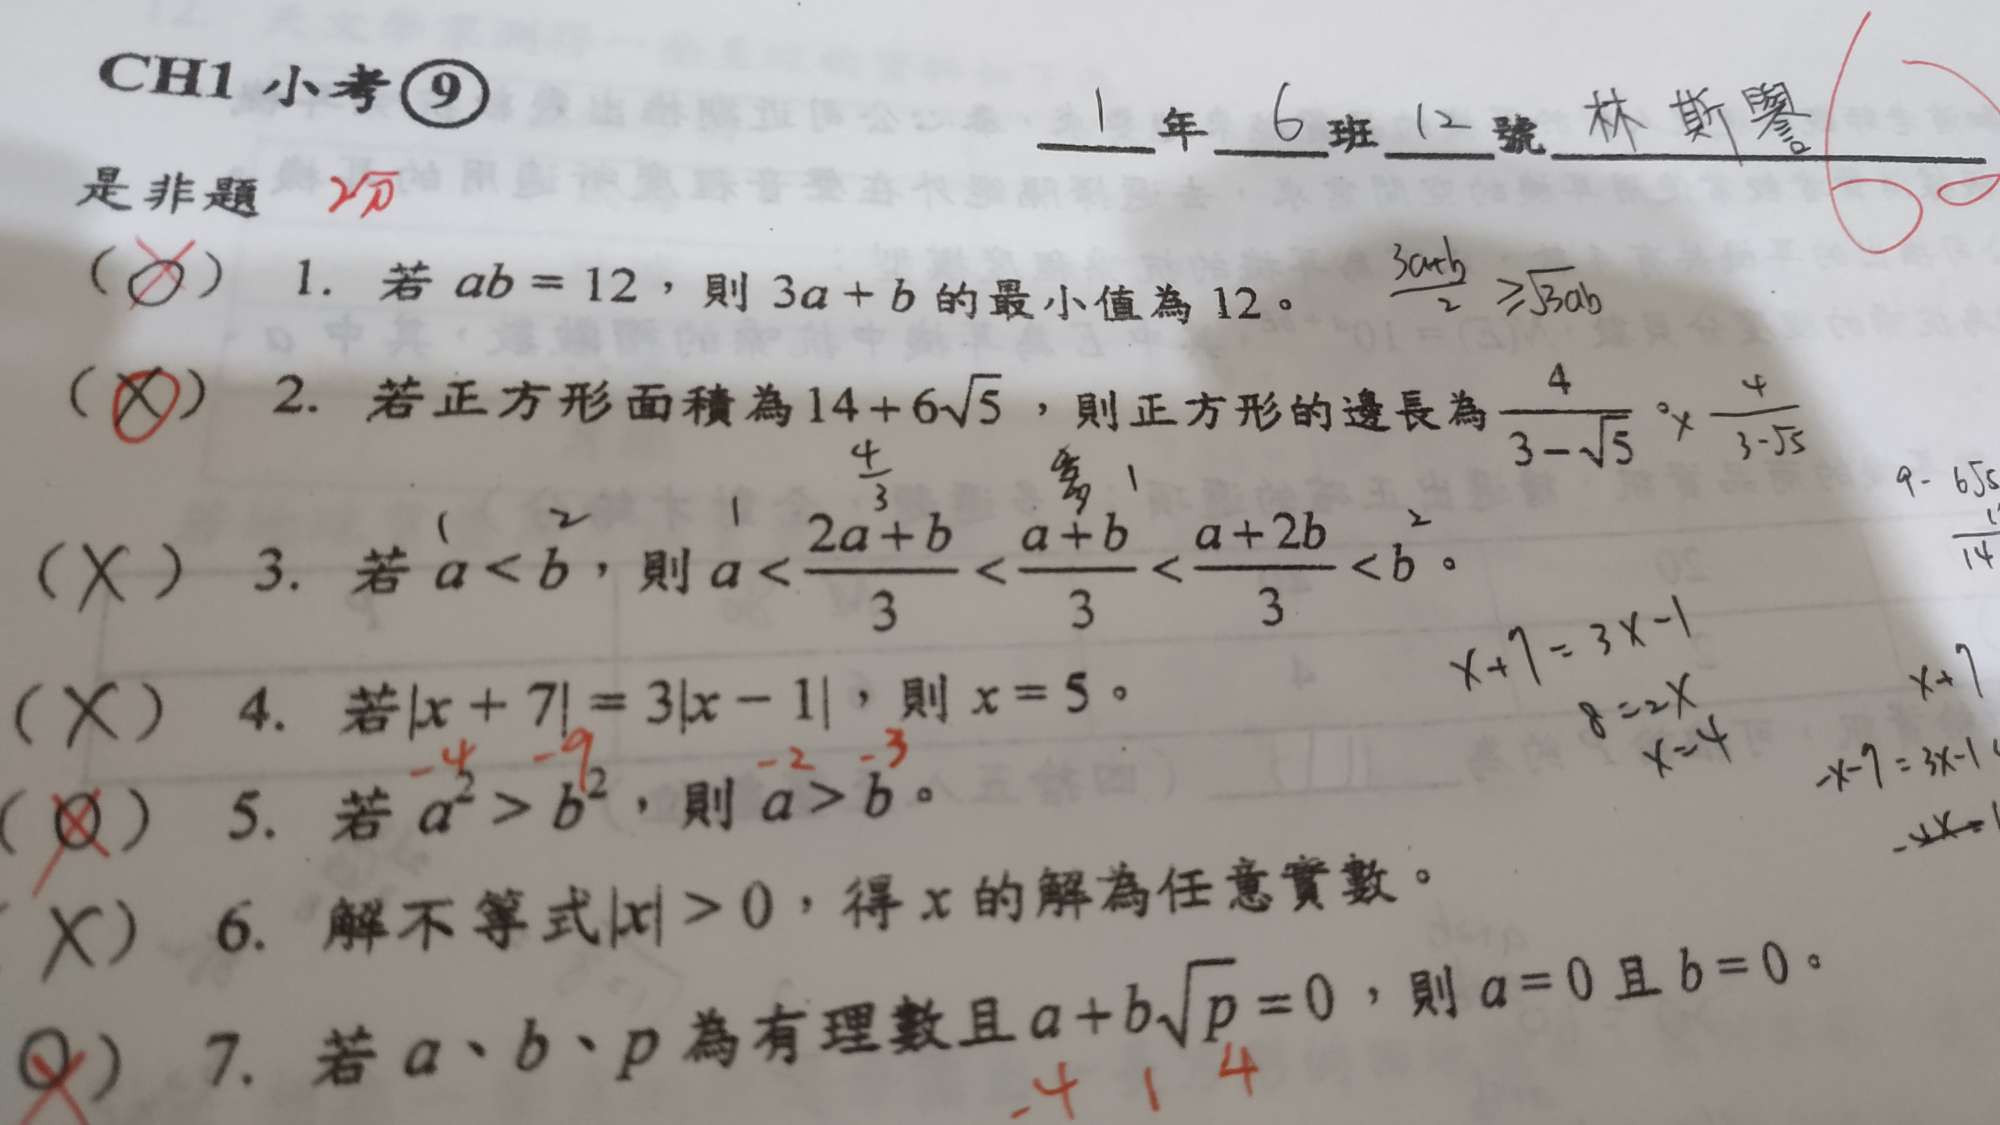 CH1 小考 ⑨
1 年 6 班 12 號 林斯譽
60
是非題
(O) 1. 若 ab = 12，則 3a + b 的最小值為 12。
3a+b/2 ≥ √3ab
(X) 2. 若正方形面積為 14 + 6√5，則正方形的邊長為 4/(3−√5)。
× 4/(3-√5)
9 - 6√5
14
4/3
1
1 2 1 2
(X) 3. 若 a < b，則 a < (2a + b)/3 < (a + b)/3 < (a + 2b)/3 < b。
x+7=3x-1
8=2x
x=4
x+7
-x-7=3x-1
(X) 4. 若 |x + 7| = 3|x − 1|，則 x = 5。
-4 -9 -2 -3
(O) 5. 若 a² > b²，則 a > b。
X) 6. 解不等式 |x| > 0，得 x 的解為任意實數。
O) 7. 若 a、b、p 為有理數且 a + b√p = 0，則 a = 0 且 b = 0。
-4 1 4